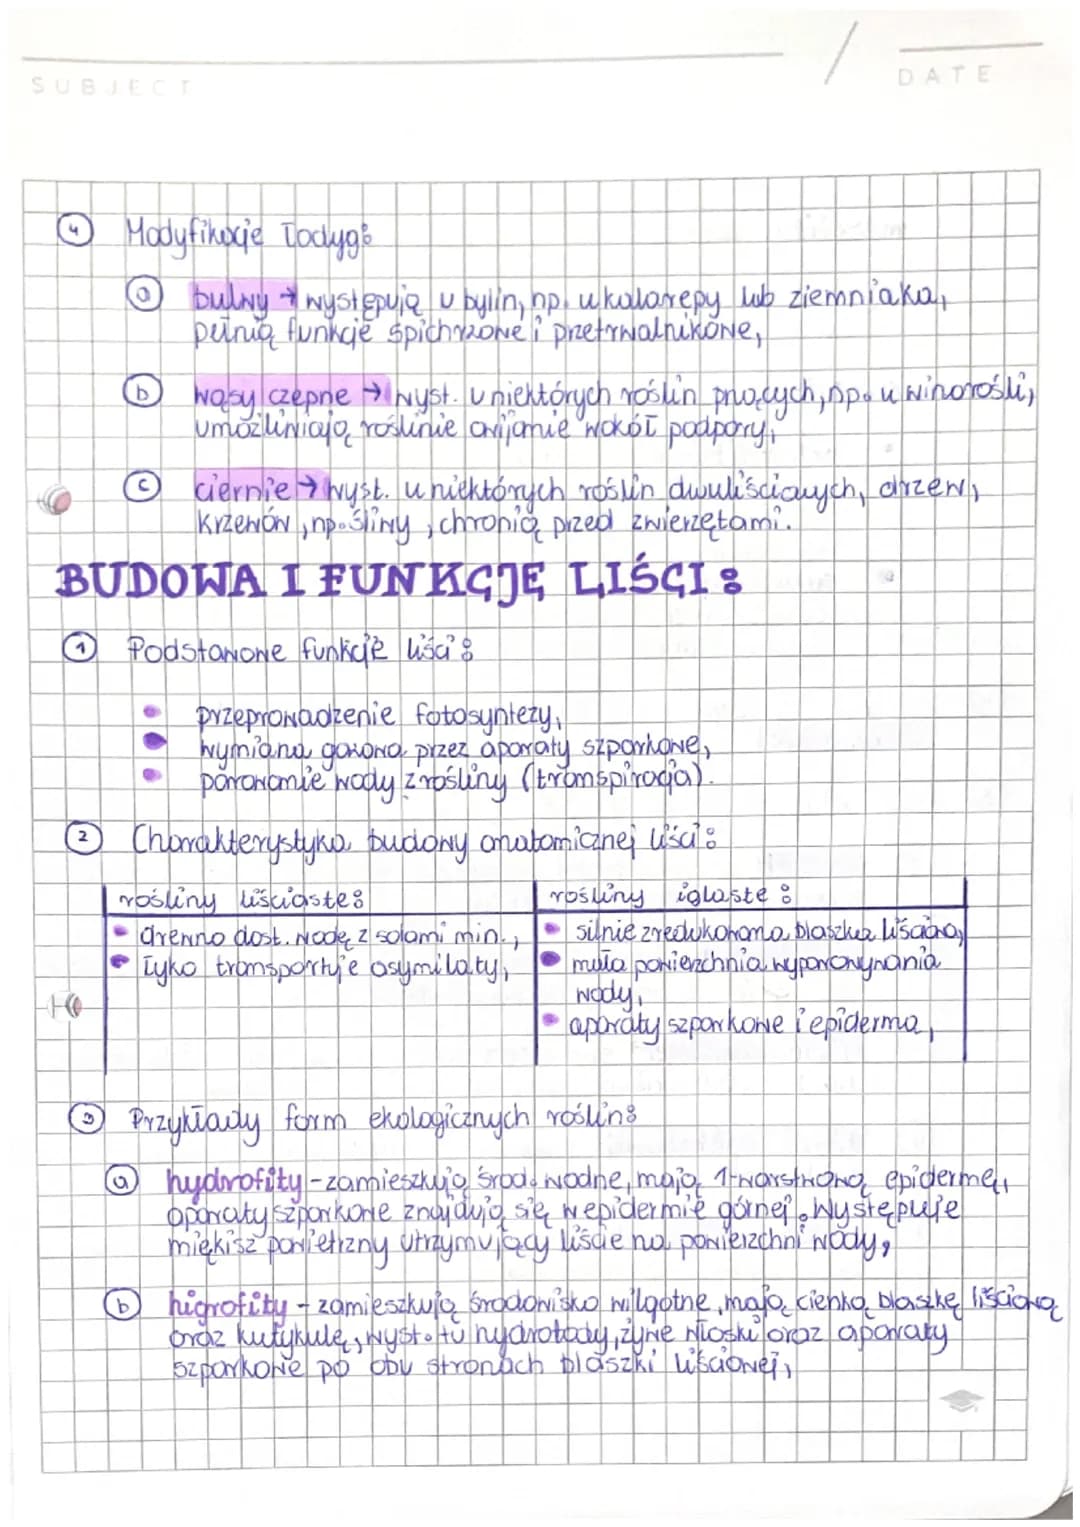 SUBJECT
DATE
4 Modyfikacje łodyg:
a bulwy → występują u bylin, np. u kalarepy lub ziemniaka,
pełnią funkcje spichrzowe i przetrwalnikowe,
b wąsy czepne → wyst. u niektórych roślin pnących, np. u winorośli,
umożliwiają roślinie owijanie wokół podpory,
c ciernie → wyst. u niektórych roślin dwuliściowych, drzew,
krzewów, np. śliwy, chronią przed zwierzętami.
BUDOWA I FUNKCJE LIŚCI:
1 Podstawowe funkcje liści:
przeprowadzenie fotosyntezy,
wymiana gazowa przez aparaty szparkowe,
parowanie wody z rośliny (transpiracja).
2 Charakterystyka budowy anatomicznej liści:
rośliny liściaste:
• drewno dost. wodę z solami min.,
• łyko transportuje asymilaty,
rośliny iglaste:
• silnie zredukowana blaszka liściowa,
• mała powierzchnia wyparowywania
wody,
• aparaty szparkowe i epiderma,
3 Przykłady form ekologicznych roślin:
a hydrofity - zamieszkują środ. wodne, mają 1-warstwową epidermę,
aparaty szparkowe znajdują się w epidermie górnej. Występuje
miękisz powietrzny utrzymujący liście na powierzchni wody,
b higrofity - zamieszkują środowisko wilgotne, mają cienką blaszkę liściową
oraz kutykulę, wyst. tu hydatody, żywe włoski oraz aparaty
szparkowe po obu stronach blaszki liściowej,